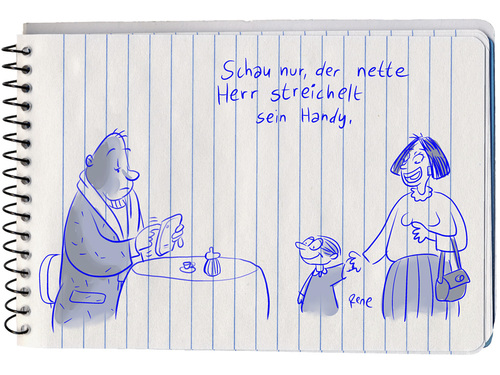 Schau nur, der nette
Herr streichelt
sein Handy.
Rene